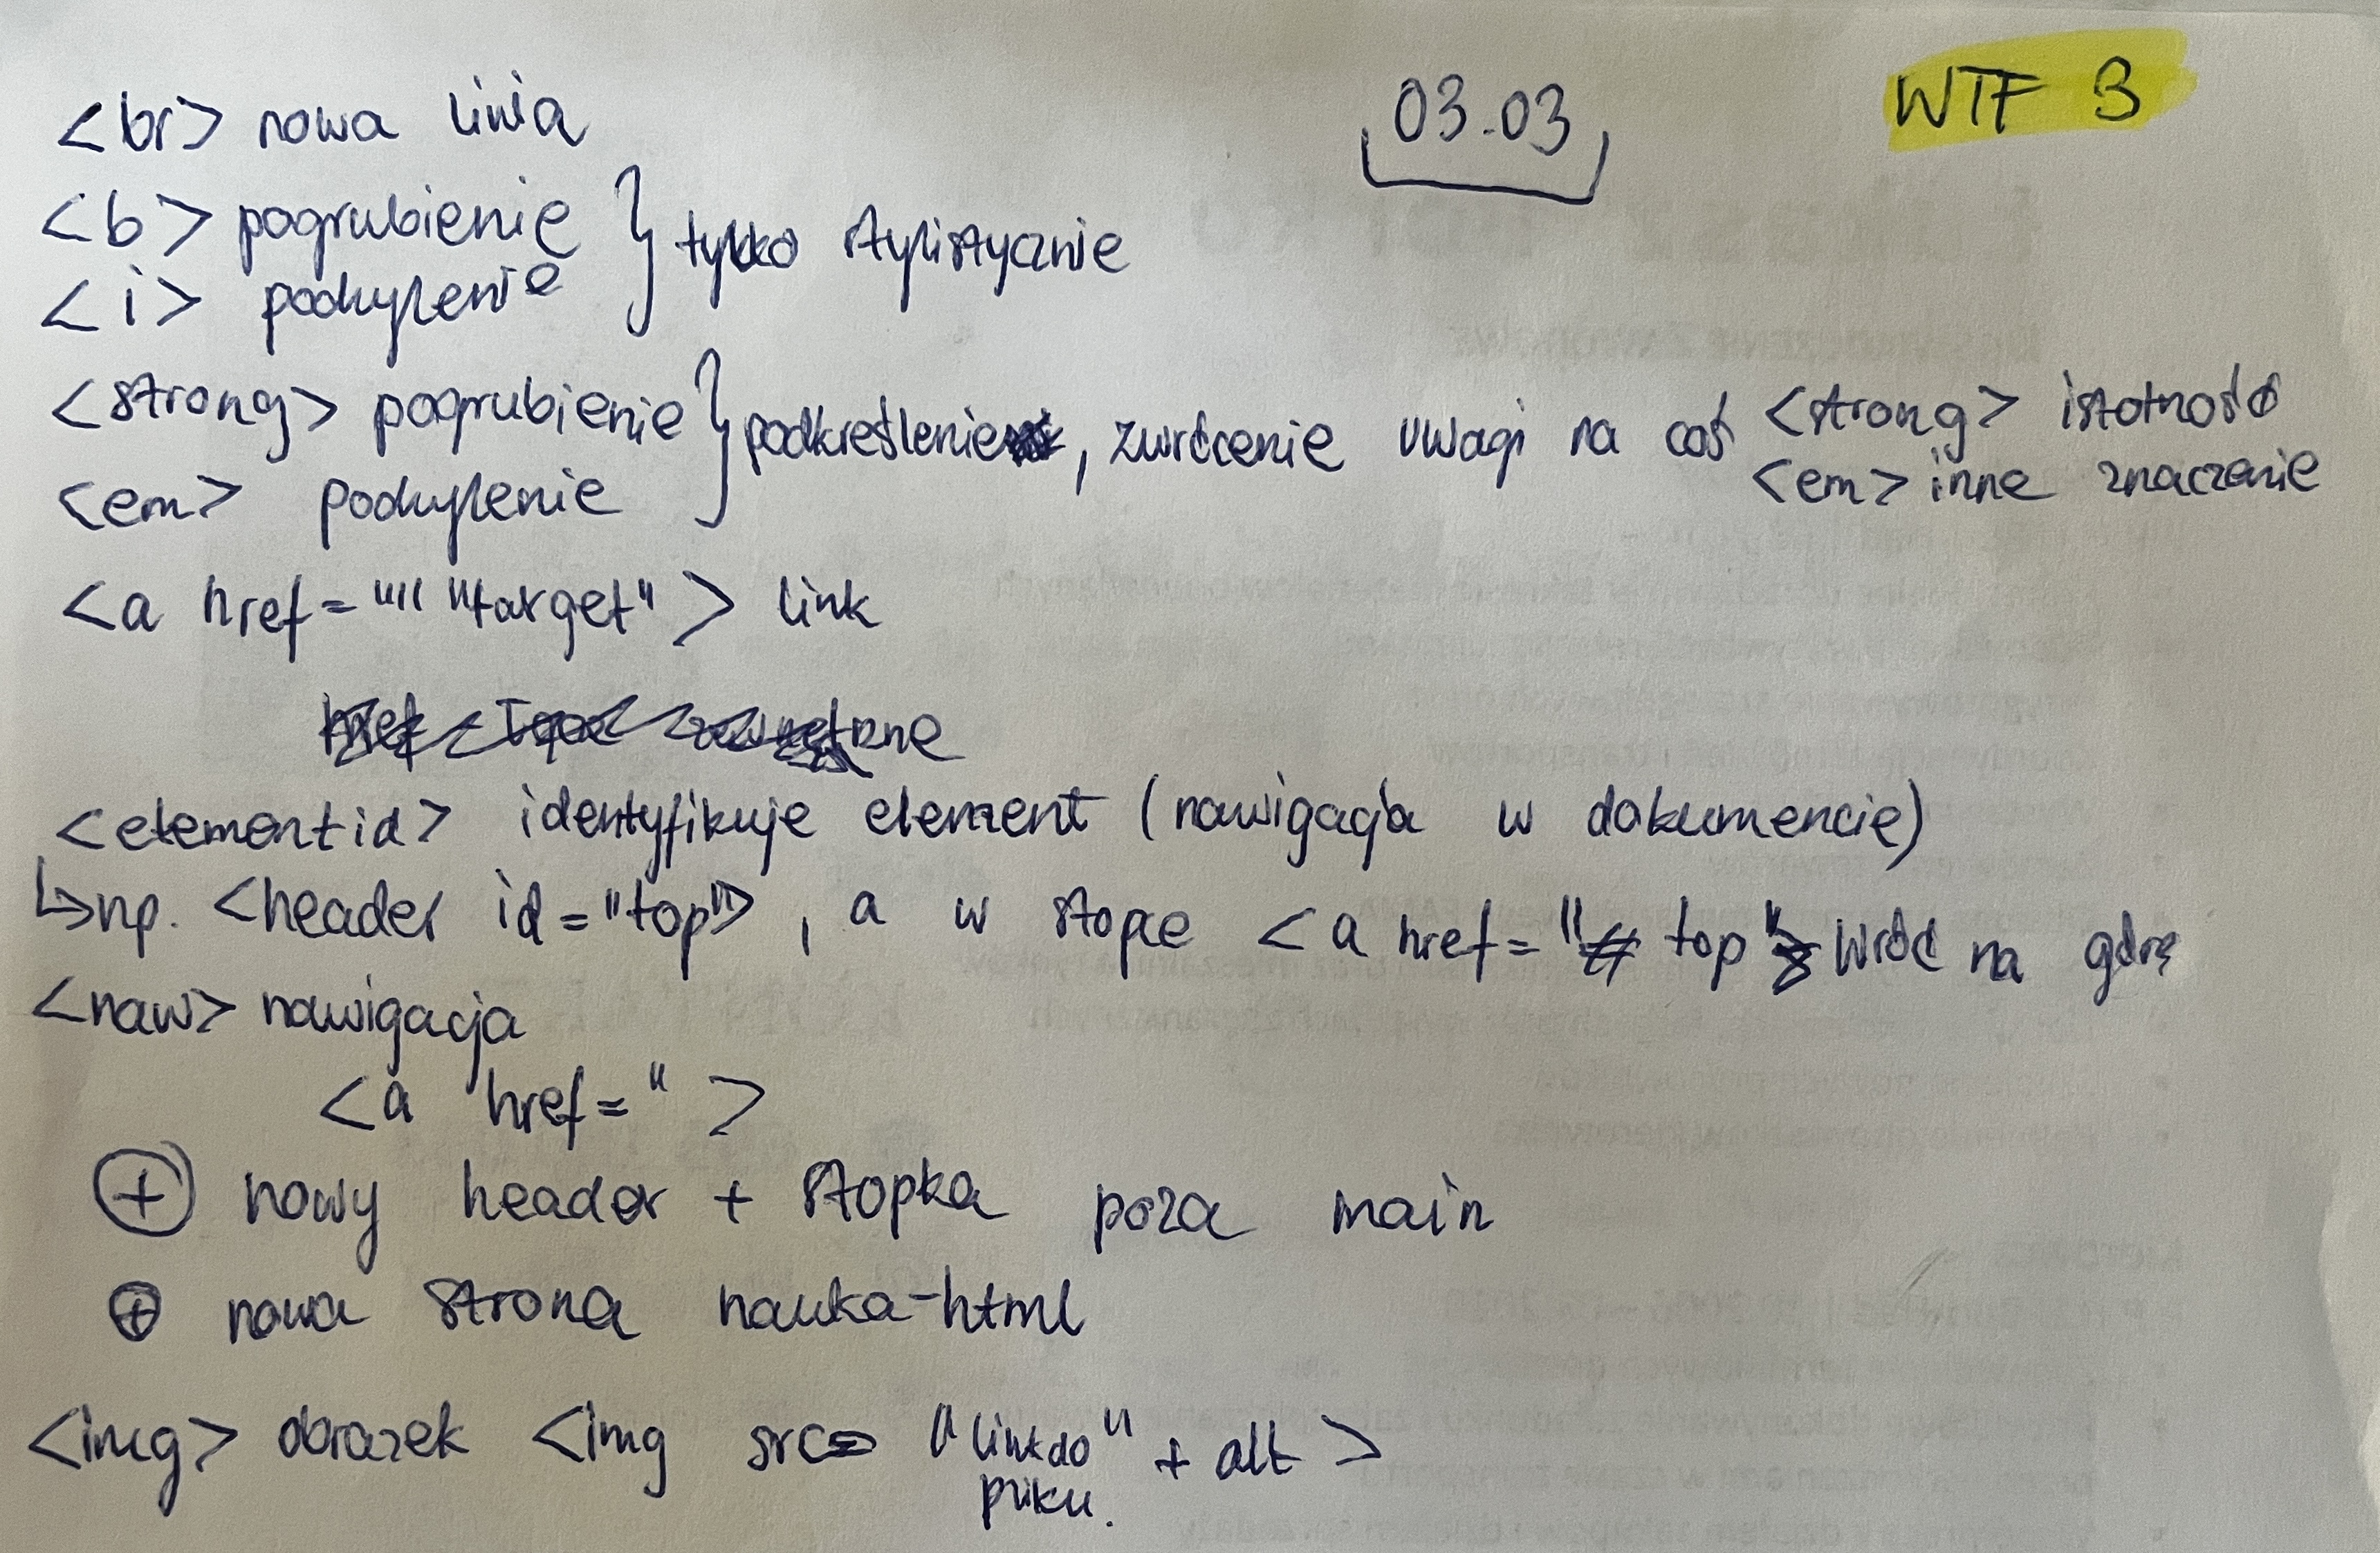 03.03
WTF 3
<br> nowa linia
<b> pogrubienie } tylko stylistycznie
<i> pochylenie
<strong> pogrubienie } podkreślenie, zwrócenie uwagi na coś <strong> istotność
<em> pochylenie <em> inne znaczenie
<a href="" "target"> link
<element id> identyfikuje element (nawigacja w dokumencie)
↳ np. <header id="top">, a w stopce <a href="# top"> wróć na górę
<naw> nawigacja
<a href=" >
⊕ nowy header + stopka poza main
⊕ nowa strona nauka-html
<img> obrazek <img src= "link do " + alt >
pliku.